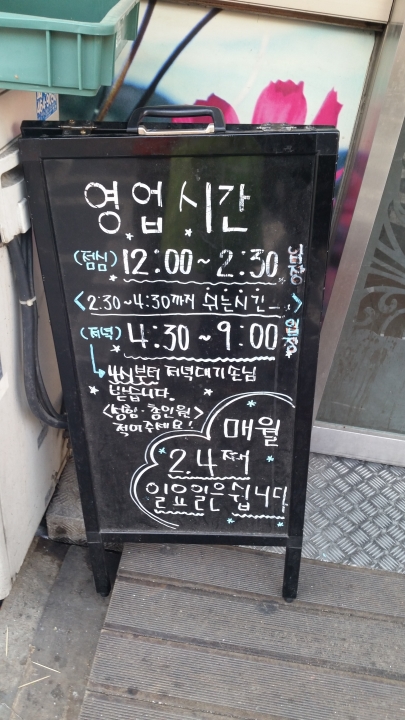 영업시간
(점심) 12:00 ~ 2:30
<2:30~4:30까지 쉬는시간>
(저녁) 4:30 ~ 9:00
4시부터 저녁대기손님
받습니다.
<성함·총인원>
적어주세요!
매월
2.4째
일요일은 쉽니다